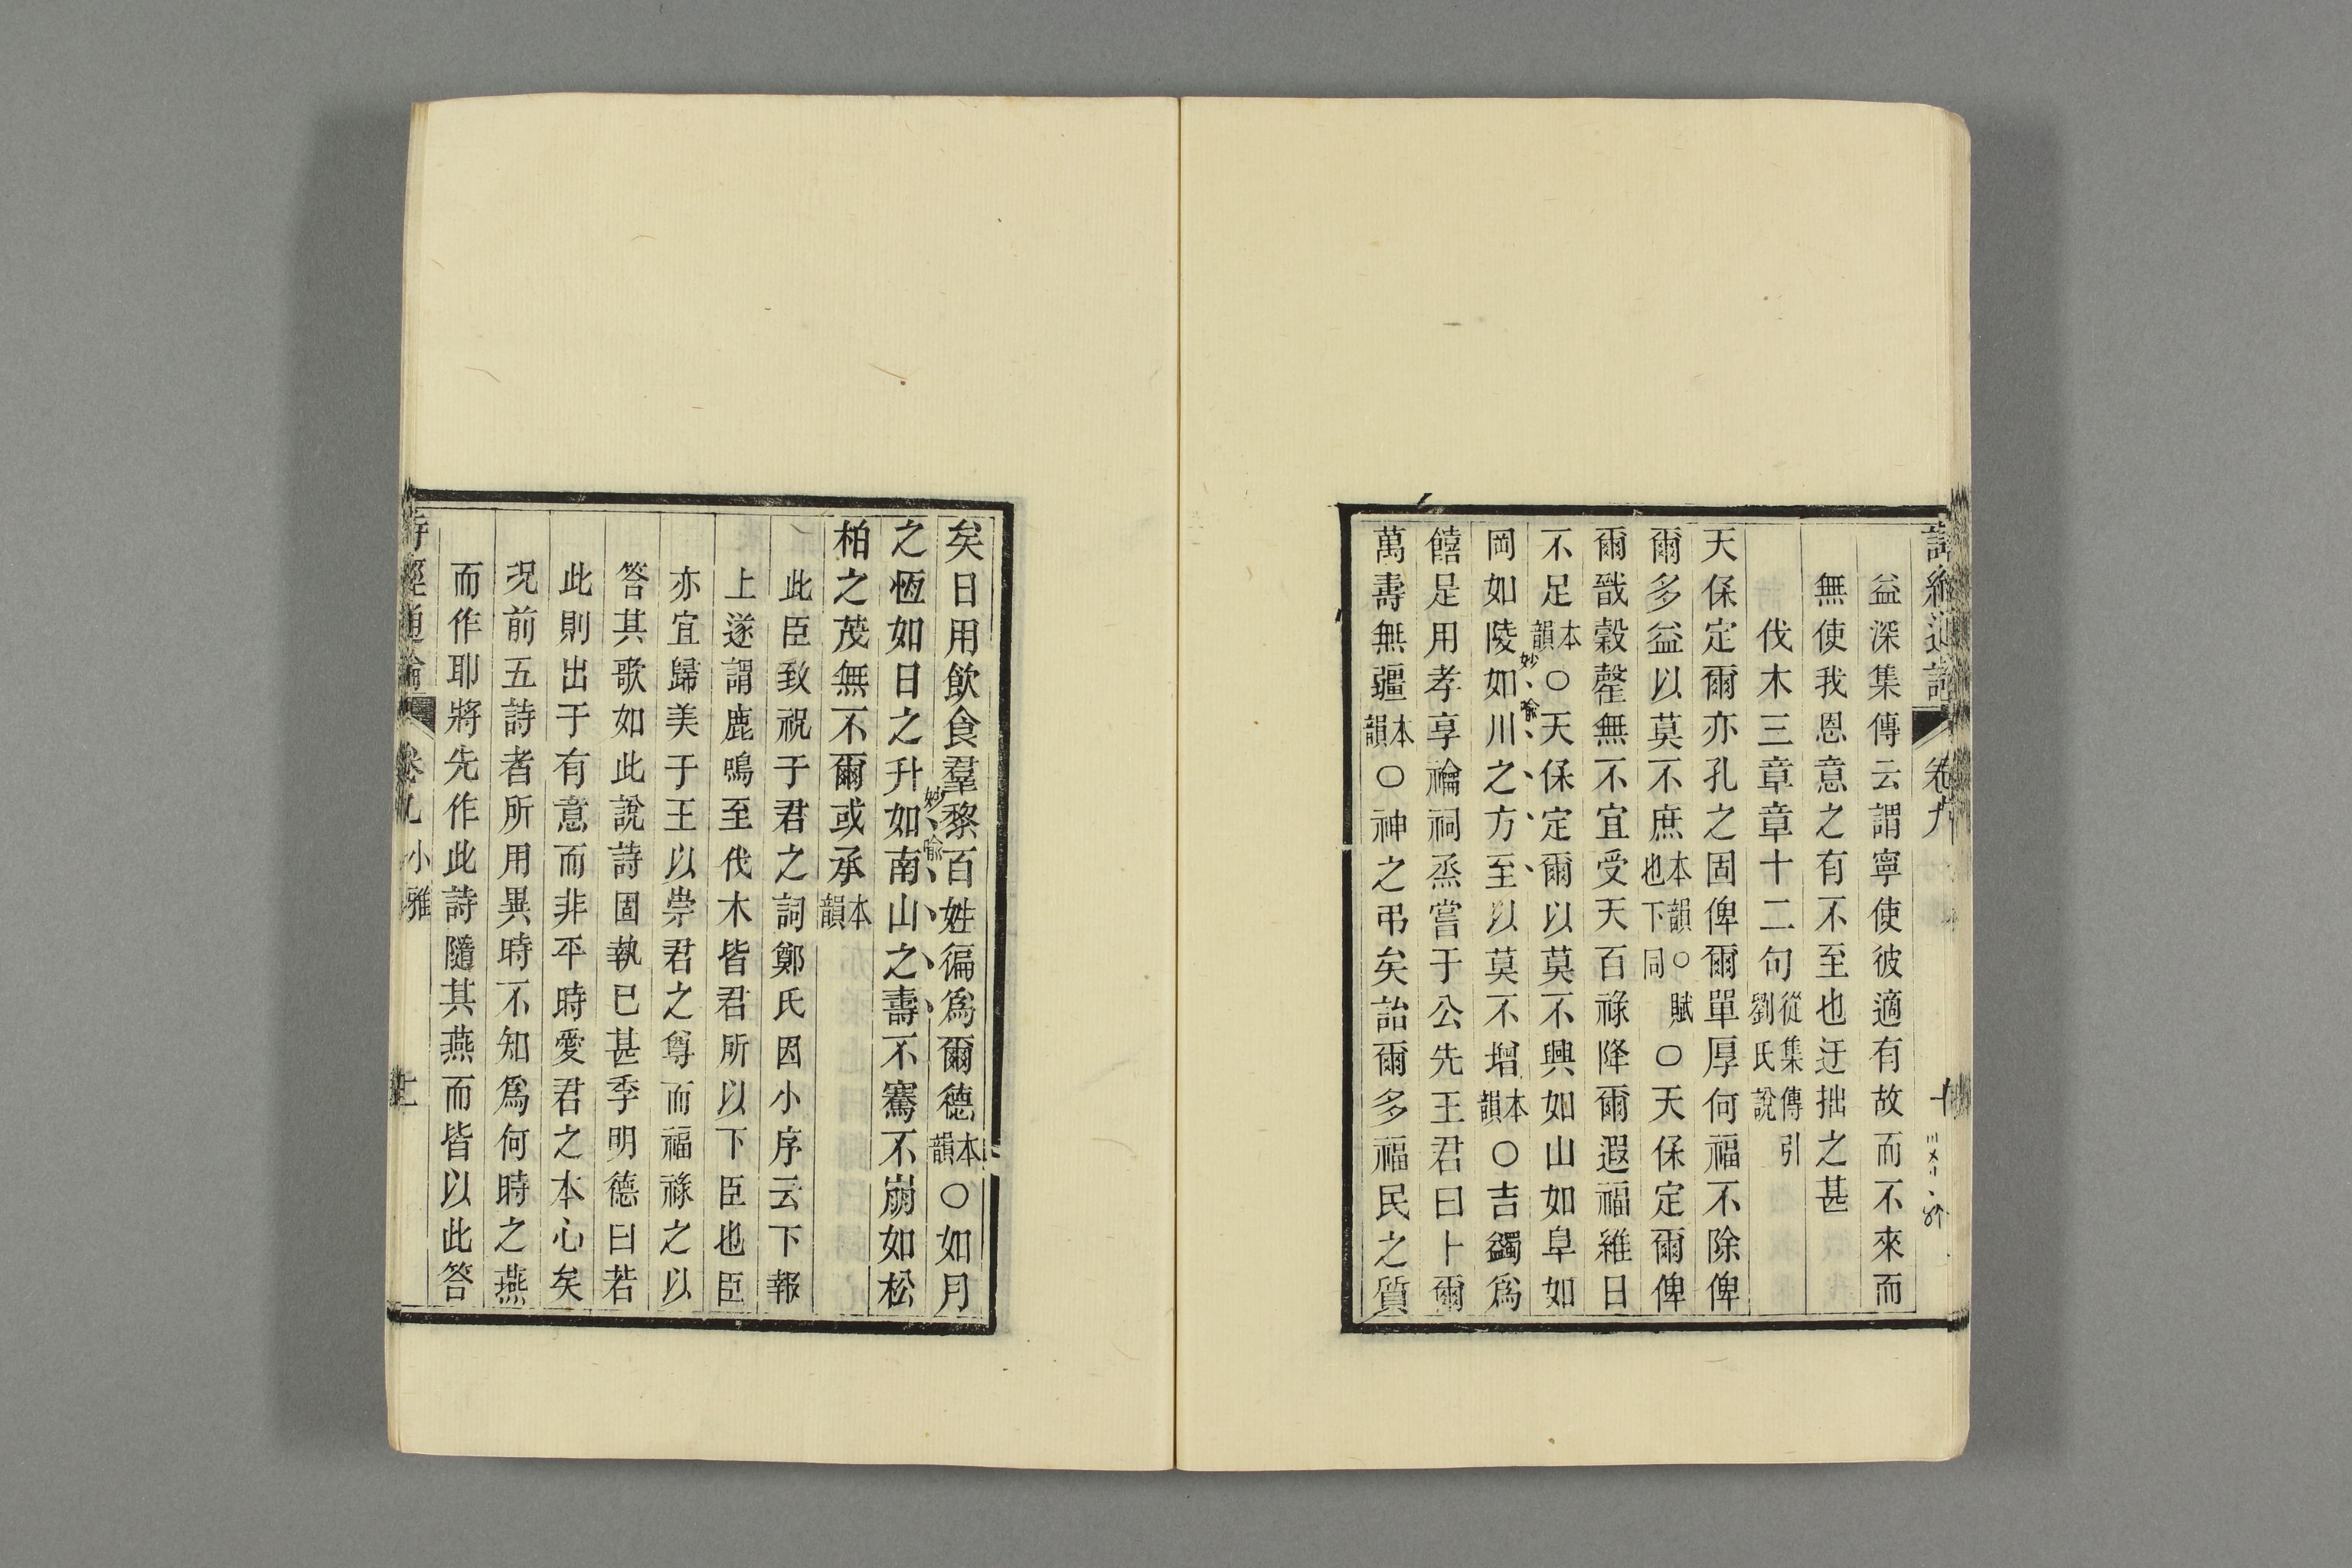 詩經通論 卷九
益深集傳云謂寧使彼適有故而不來而
無使我恩意之有不至也迂拙之甚
伐木三章章十二句從集傳引劉氏說
天保定爾亦孔之固俾爾單厚何福不除俾
爾多益以莫不庶本韻○賦也下同○天保定爾俾
爾戩穀罄無不宜受天百祿降爾遐福維日
不足本韻○天保定爾以莫不興如山如阜如
妙喻
岡如陵如川之方至以莫不增本韻○吉蠲爲
饎是用孝享禴祠烝嘗于公先王君曰卜爾
萬壽無疆本韻○神之弔矣詒爾多福民之質
矣日用飲食羣黎百姓徧爲爾德本韻○如月
妙喻
之恆如日之升如南山之壽不騫不崩如松
柏之茂無不爾或承本韻
此臣致祝于君之詞鄭氏因小序云下報
上遂謂鹿鳴至伐木皆君所以下臣也臣
亦宜歸美于王以崇君之尊而福祿之以
答其歌如此說詩固執已甚季明德曰若
此則出于有意而非平時愛君之本心矣
況前五詩者所用異時不知爲何時之燕
而作耶將先作此詩隨其燕而皆以此答
詩經通論 卷九 小雅